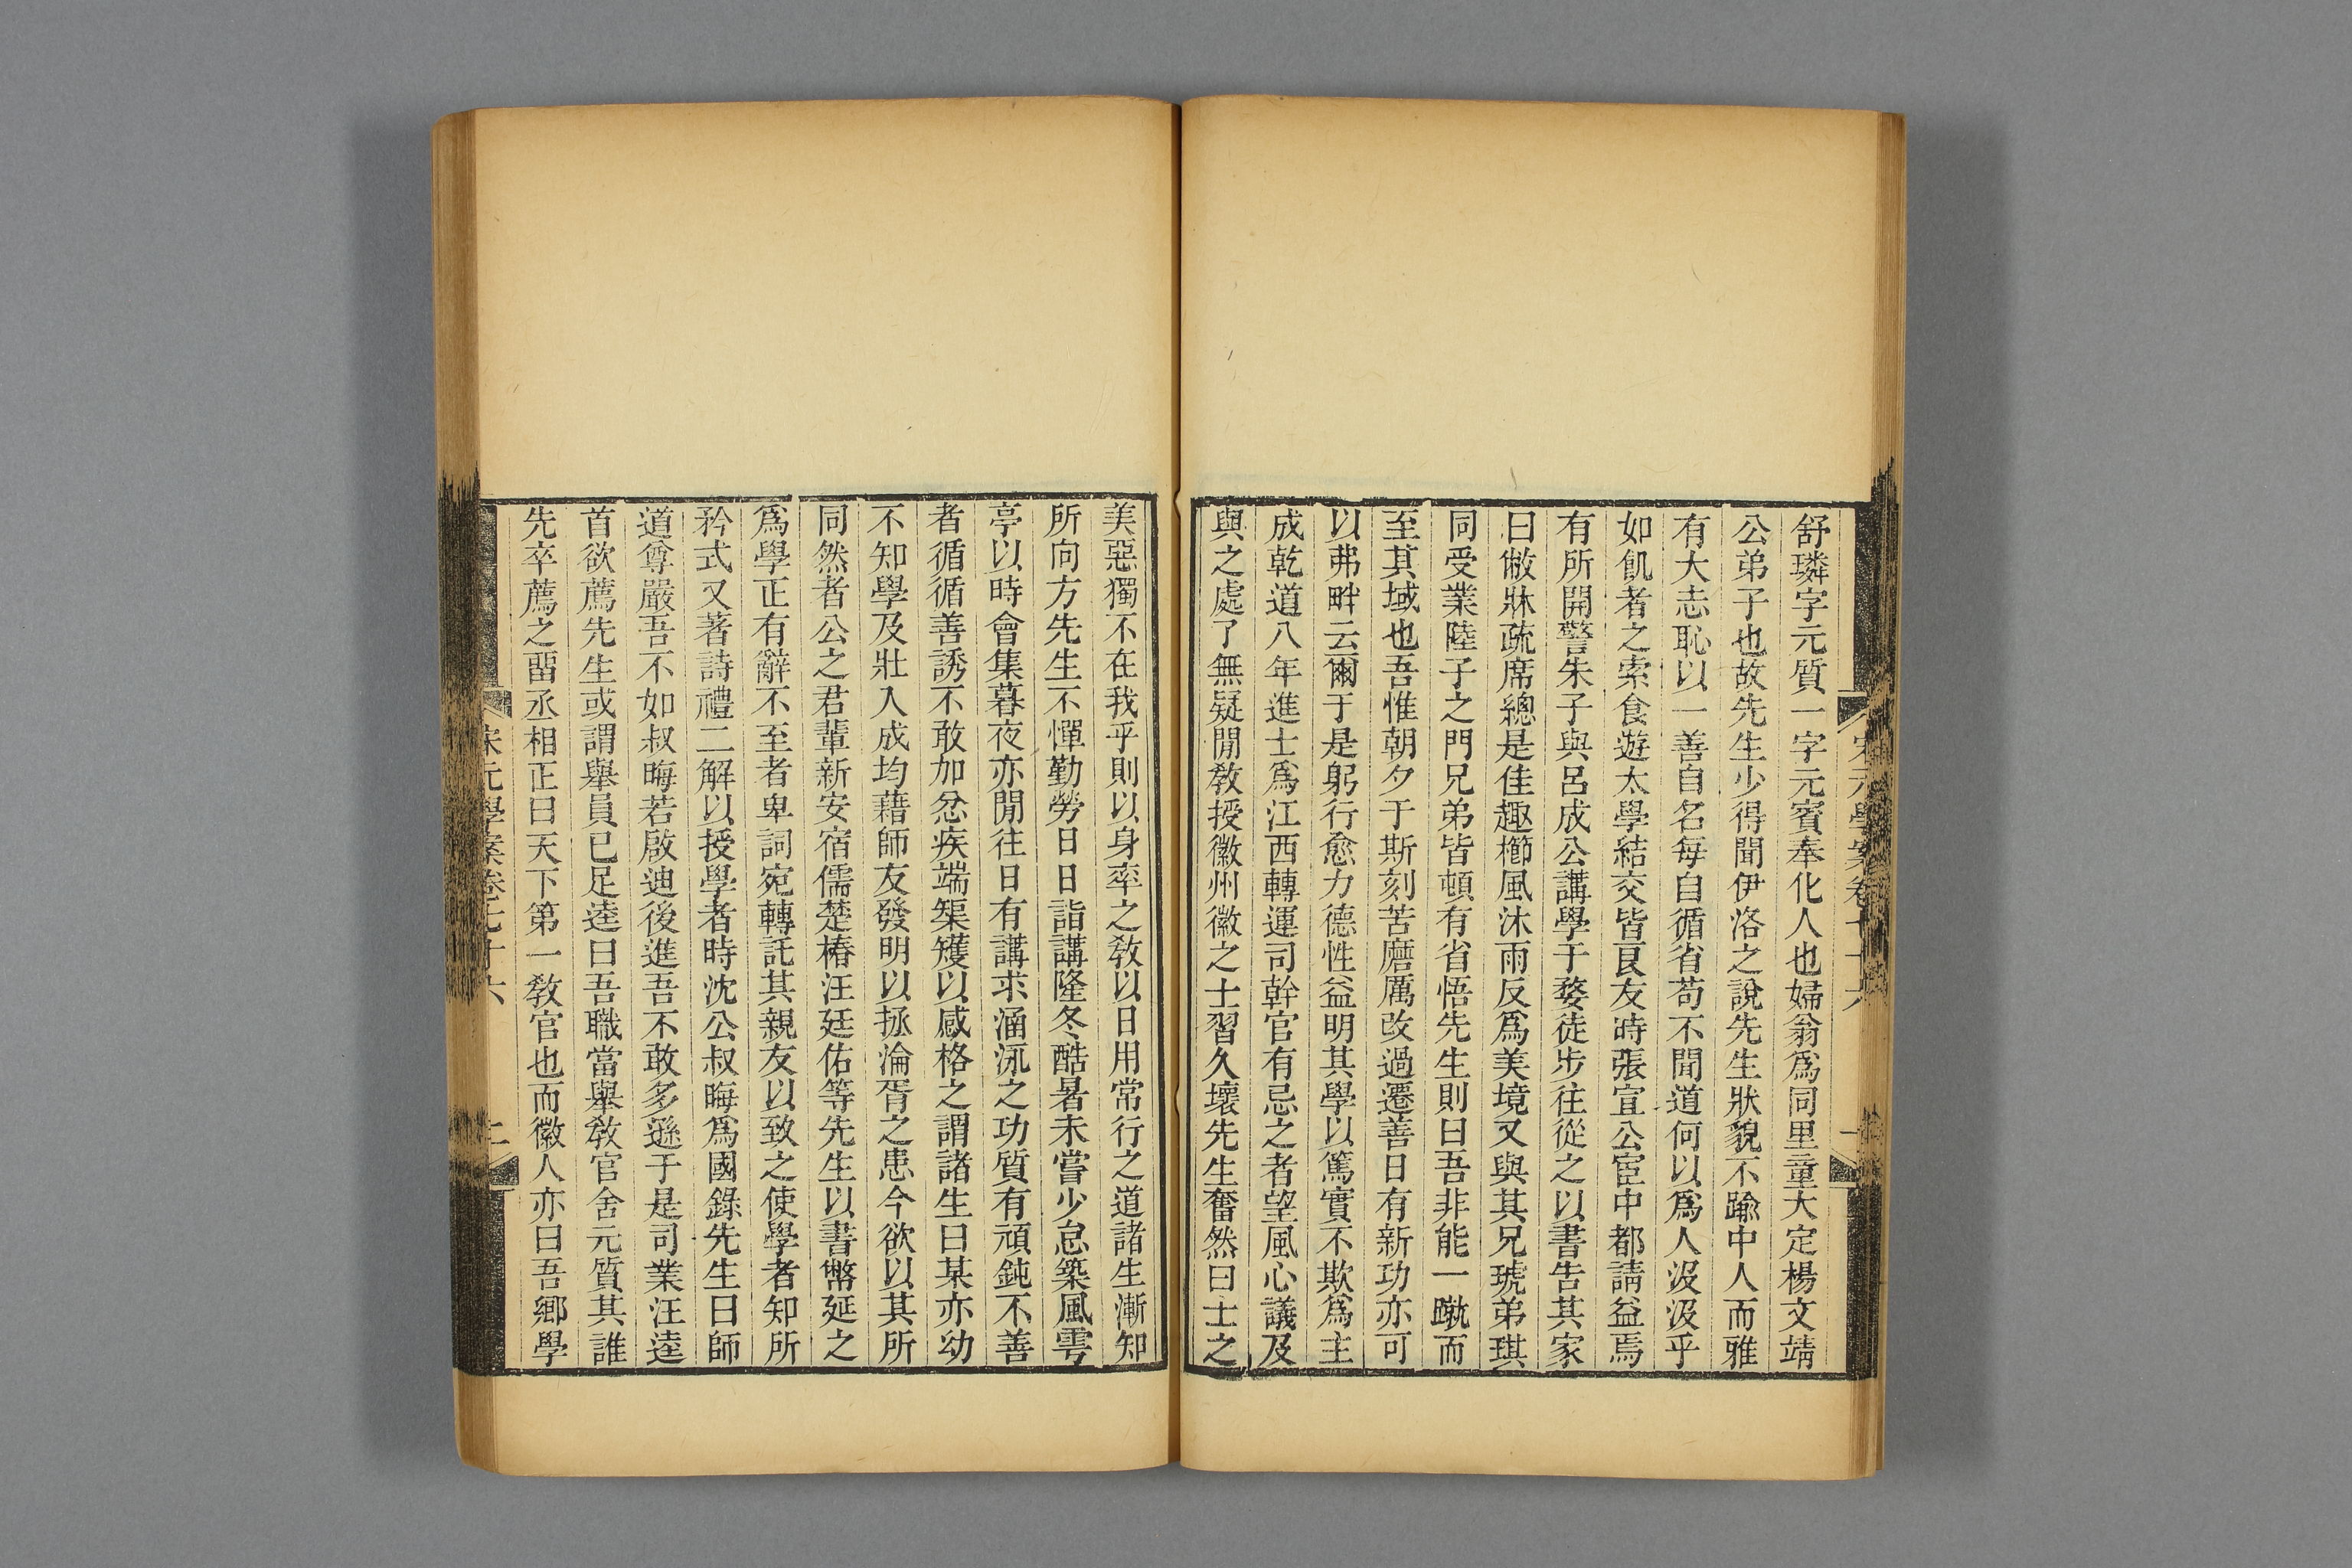 舒璘字元質一字元賓奉化人也婦翁爲同里童大定楊文靖
公弟子也故先生少得聞伊洛之說先生狀貌不踰中人而雅
有大志恥以一善自名每自循省苟不聞道何以爲人汲汲乎
如飢者之索食遊太學結交皆良友時張宣公宦中都請益焉
有所開警朱子與呂成公講學于婺徒步往從之以書告其家
曰敝牀疏席總是佳趣櫛風沐雨反爲美境又與其兄琥弟琪
同受業陸子之門兄弟皆頓有省悟先生則曰吾非能一蹴而
至其域也吾惟朝夕于斯刻苦磨厲改過遷善日有新功亦可
以弗畔云爾于是躬行愈力德性益明其學以篤實不欺爲主
成乾道八年進士爲江西轉運司幹官有忌之者望風心議及
與之處了無疑閒敎授徽州徽之士習久壞先生奮然曰士之
美惡獨不在我乎則以身率之敎以日用常行之道諸生漸知
所向方先生不憚勤勞日日詣講隆冬酷暑未嘗少怠築風雩
亭以時會集暮夜亦閒往日有講求涵泳之功質有頑鈍不善
者循循善誘不敢加忿疾端榘矱以感格之謂諸生曰某亦幼
不知學及壯入成均藉師友發明以拯淪胥之患今欲以其所
同然者公之君輩新安宿儒楚椿汪廷佑等先生以書幣延之
爲學正有辭不至者卑詞宛轉託其親友以致之使學者知所
矜式又著詩禮二解以授學者時沈公叔晦爲國錄先生曰師
道尊嚴吾不如叔晦若啟迪後進吾不敢多遜于是司業汪逵
首欲薦先生或謂舉員已足逵曰吾職當舉敎官舍元質其誰
先卒薦之畱丞相正曰天下第一敎官也而徽人亦曰吾鄉學
宋元學案卷七十六